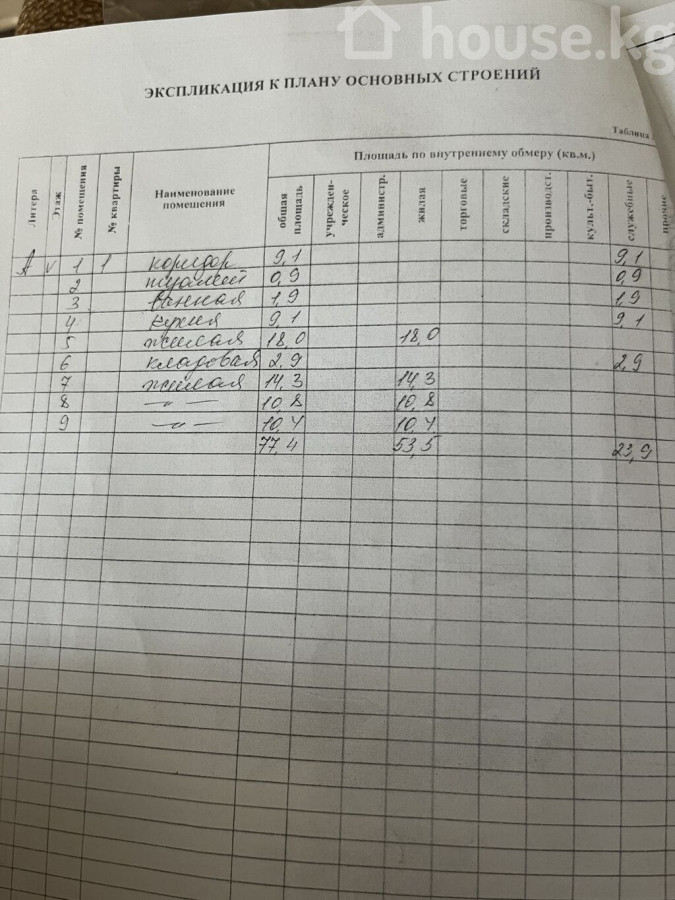 house.kg
ЭКСПЛИКАЦИЯ К ПЛАНУ ОСНОВНЫХ СТРОЕНИЙ
Таблица
Литера Этаж № помещения № квартиры Наименование помещения Площадь по внутреннему обмеру (кв.м.)
общая площадь учрежден-ческое администр. жилая торговые складские производст. культ.-быт. служебные прочие
А V 1 1 коридор 9,1 9,1
2 туалет 0,9 0,9
3 ванная 1,9 1,9
4 кухня 9,1 9,1
5 жилая 18,0 18,0
6 кладовая 2,9 2,9
7 жилая 14,3 14,3
8 —〃— 10,8 10,8
9 —〃— 10,4 10,4
77,4 53,5 23,9